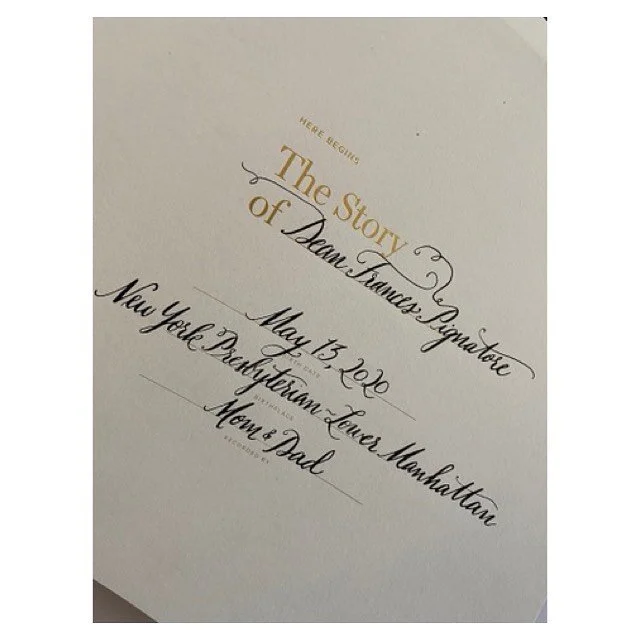 HERE BEGINS
The Story
of Dean Frances Pignatore
May 13, 2020
BIRTH DATE
New York Presbyterian-Lower Manhattan
BIRTHPLACE
Mom & Dad
RECORDED BY